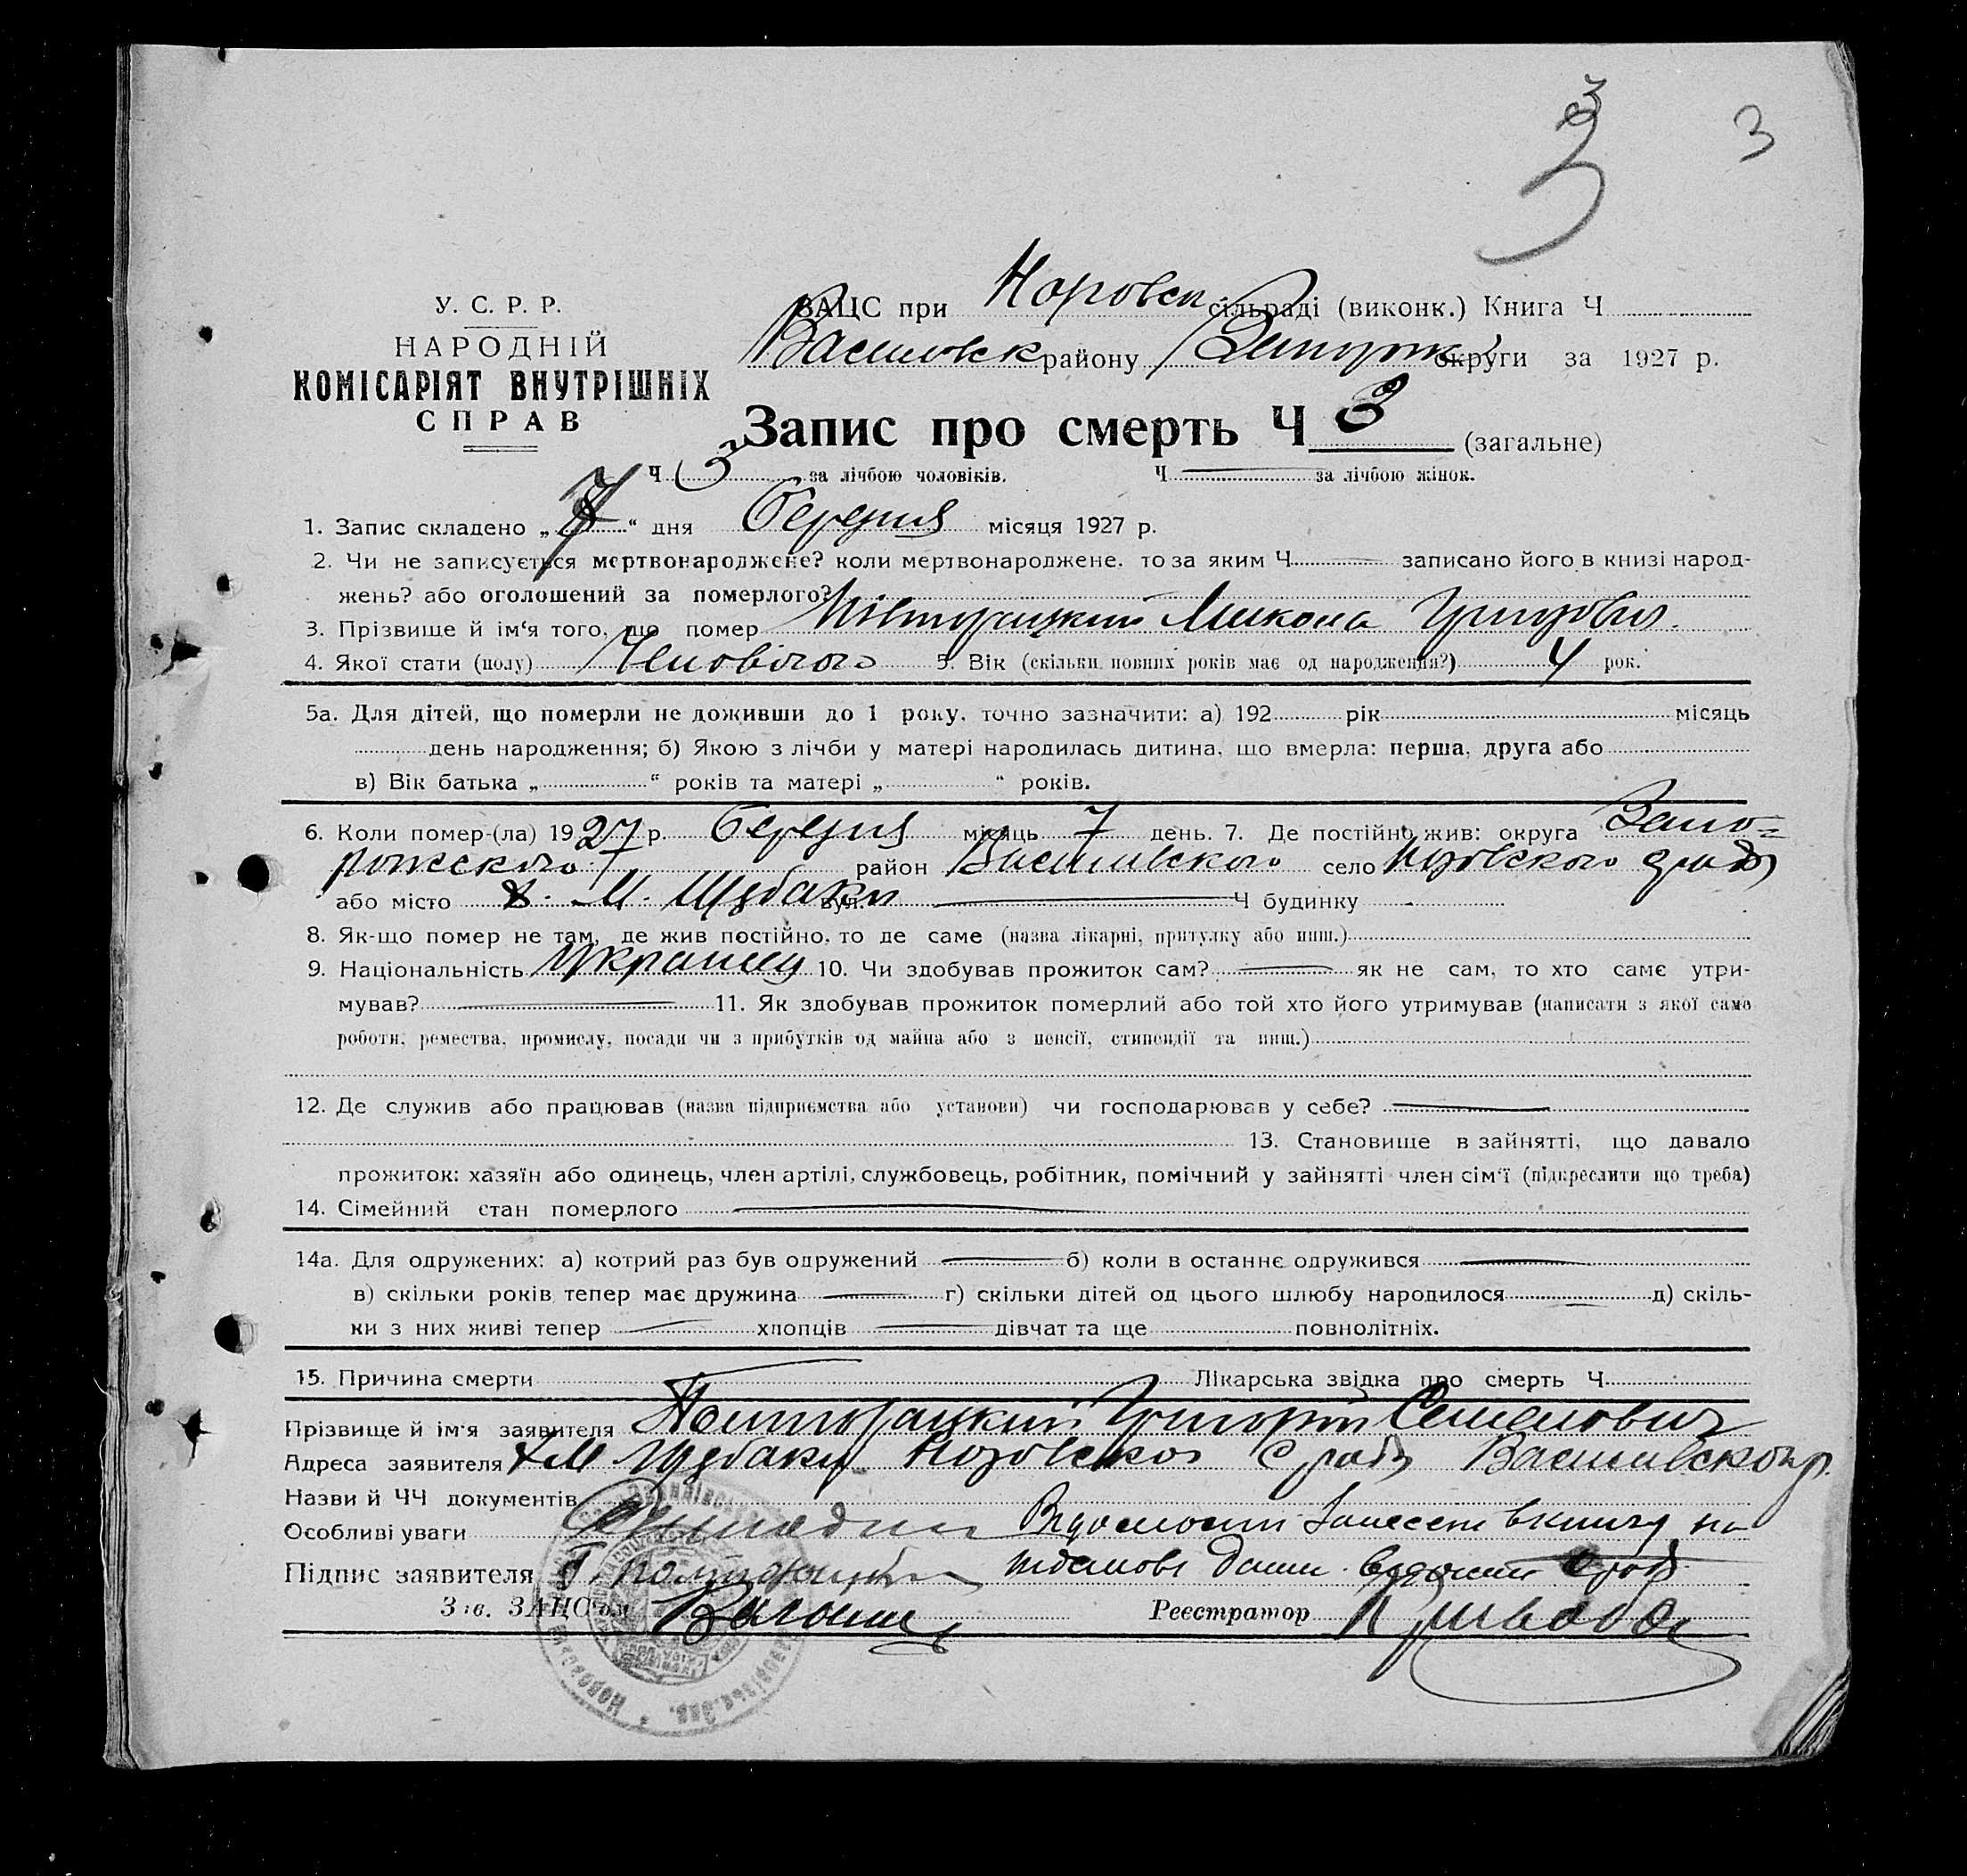 3
3
У. С. Р. Р.
НАРОДНІЙ
КОМІСАРІЯТ ВНУТРІШНІХ
СПРАВ
ЗАЦС при сільраді (виконк.) Книга Ч
Василовск району округи за 1927 р.
Запис про смерть Ч 3 (загальне)
Ч 3 за лічбою чоловіків. Ч за лічбою жінок.
1. Запис складено „7“ дня березня місяця 1927 р.
2. Чи не записується мертвонароджене? коли мертвонароджене. то за яким Ч записано його в книзі народ-
жень? або оголошений за померлого?
3. Прізвище й ім‘я того, що помер Микола Григорович
4. Якої стати (полу) Чоловічого 5. Вік (скільки повних років має од народження?) 4 рок.
5а. Для дітей, що померли не доживши до 1 року, точно зазначити: а) 192 рік місяць
день народження; б) Якою з лічби у матері народилась дитина, що вмерла: перша, друга або
в) Вік батька „ “ років та матері „ “ років.
6. Коли помер-(ла) 1927 р. березня місяць 7 день. 7. Де постійно жив: округа Запо-
рожского район Василивского село
або місто х. М. Щебаки вул. Ч будинку
8. Як-що помер не там, де жив постійно, то де саме (назва лікарні, притулку або инш.)
9. Національність Украинец 10. Чи здобував прожиток сам? як не сам, то хто саме утри-
мував? 11. Як здобував прожиток померлий або той хто його утримував (написати з якої саме
роботи, ремества, промислу, посади чи з прибутків од майна або з пенсії, стипендії та инш.)
12. Де служив або працював (назва підприємства або установи) чи господарював у себе?
13. Становище в зайнятті, що давало
прожиток: хазяїн або одинець, член артілі, службовець, робітник, помічний у зайнятті член сім‘ї (підкреслити що треба)
14. Сімейний стан померлого
14а. Для одружених: а) котрий раз був одружений б) коли в останнє одружився
в) скільки років тепер має дружина г) скільки дітей од цього шлюбу народилося д) скіль-
ки з них живі тепер хлопців дівчат та ще повнолітніх.
15. Причина смерти Лікарська звідка про смерть Ч
Прізвище й ім‘я заявителя Григорій Семенович
Адреса заявителя х М Щебаки Василивского р.
Назви й ЧЧ документів
Особливі уваги Відомости занесени в книгу на
Підпис заявителя підставі
Зав. ЗАЦС‘ом Реєстратор